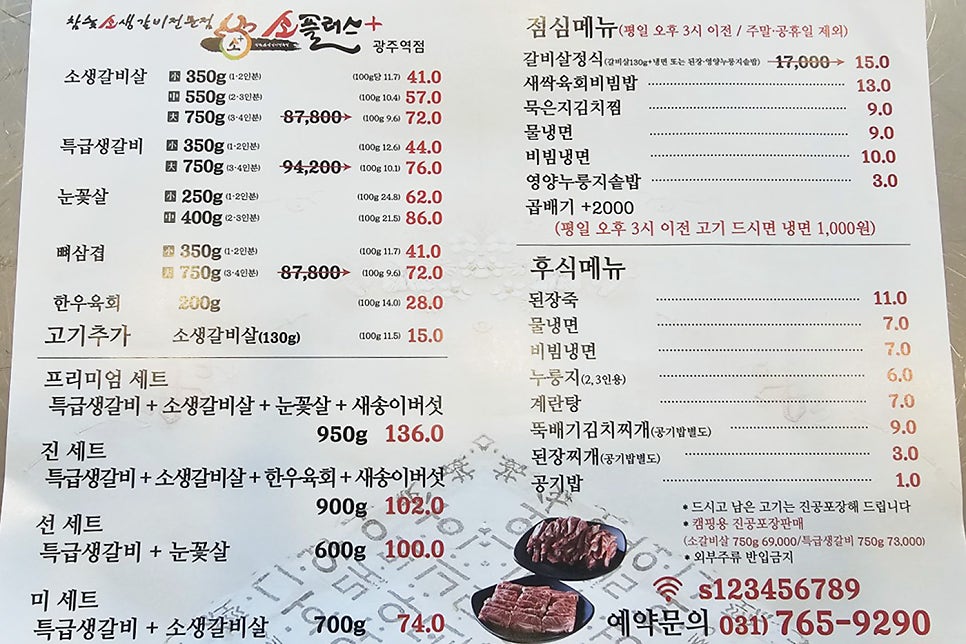 참숯 소생갈비전문점 소플러스+ 광주역점
소생갈비살 小 350g (1·2인분) (100g당 11.7) 41.0
中 550g (2·3인분) (100g 10.4) 57.0
大 750g (3·4인분) 87,800 (100g 9.6) 72.0
특급생갈비 小 350g (1·2인분) (100g 12.6) 44.0
大 750g (3·4인분) 94,200 (100g 10.1) 76.0
눈꽃살 小 250g (1·2인분) (100g 24.8) 62.0
中 400g (2·3인분) (100g 21.5) 86.0
뼈삼겹 小 350g (1·2인분) (100g 11.7) 41.0
大 750g (3·4인분) 87,800 (100g 9.6) 72.0
한우육회 200g (100g 14.0) 28.0
고기추가 소생갈비살(130g) (100g 11.5) 15.0
프리미엄 세트
특급생갈비 + 소생갈비살 + 눈꽃살 + 새송이버섯
950g 136.0
진 세트
특급생갈비 + 소생갈비살 + 한우육회 + 새송이버섯
900g 102.0
선 세트
특급생갈비 + 눈꽃살 600g 100.0
미 세트
특급생갈비 + 소생갈비살 700g 74.0
점심메뉴(평일 오후 3시 이전 / 주말·공휴일 제외)
갈비살정식(갈비살130g+냉면 또는 된장·영양누룽지솥밥) 17,000 15.0
새싹육회비빔밥 13.0
묵은지김치찜 9.0
물냉면 9.0
비빔냉면 10.0
영양누룽지솥밥 3.0
곱배기 +2000
(평일 오후 3시 이전 고기 드시면 냉면 1,000원)
후식메뉴
된장죽 11.0
물냉면 7.0
비빔냉면 7.0
누룽지(2, 3인용) 6.0
계란탕 7.0
뚝배기김치찌개(공기밥별도) 9.0
된장찌개(공기밥별도) 3.0
공기밥 1.0
* 드시고 남은 고기는 진공포장해 드립니다
* 캠핑용 진공포장판매
(소갈비살 750g 69.000/특급생갈비 750g 73.000)
* 외부주류 반입금지
s123456789
예약문의 031) 765-9290